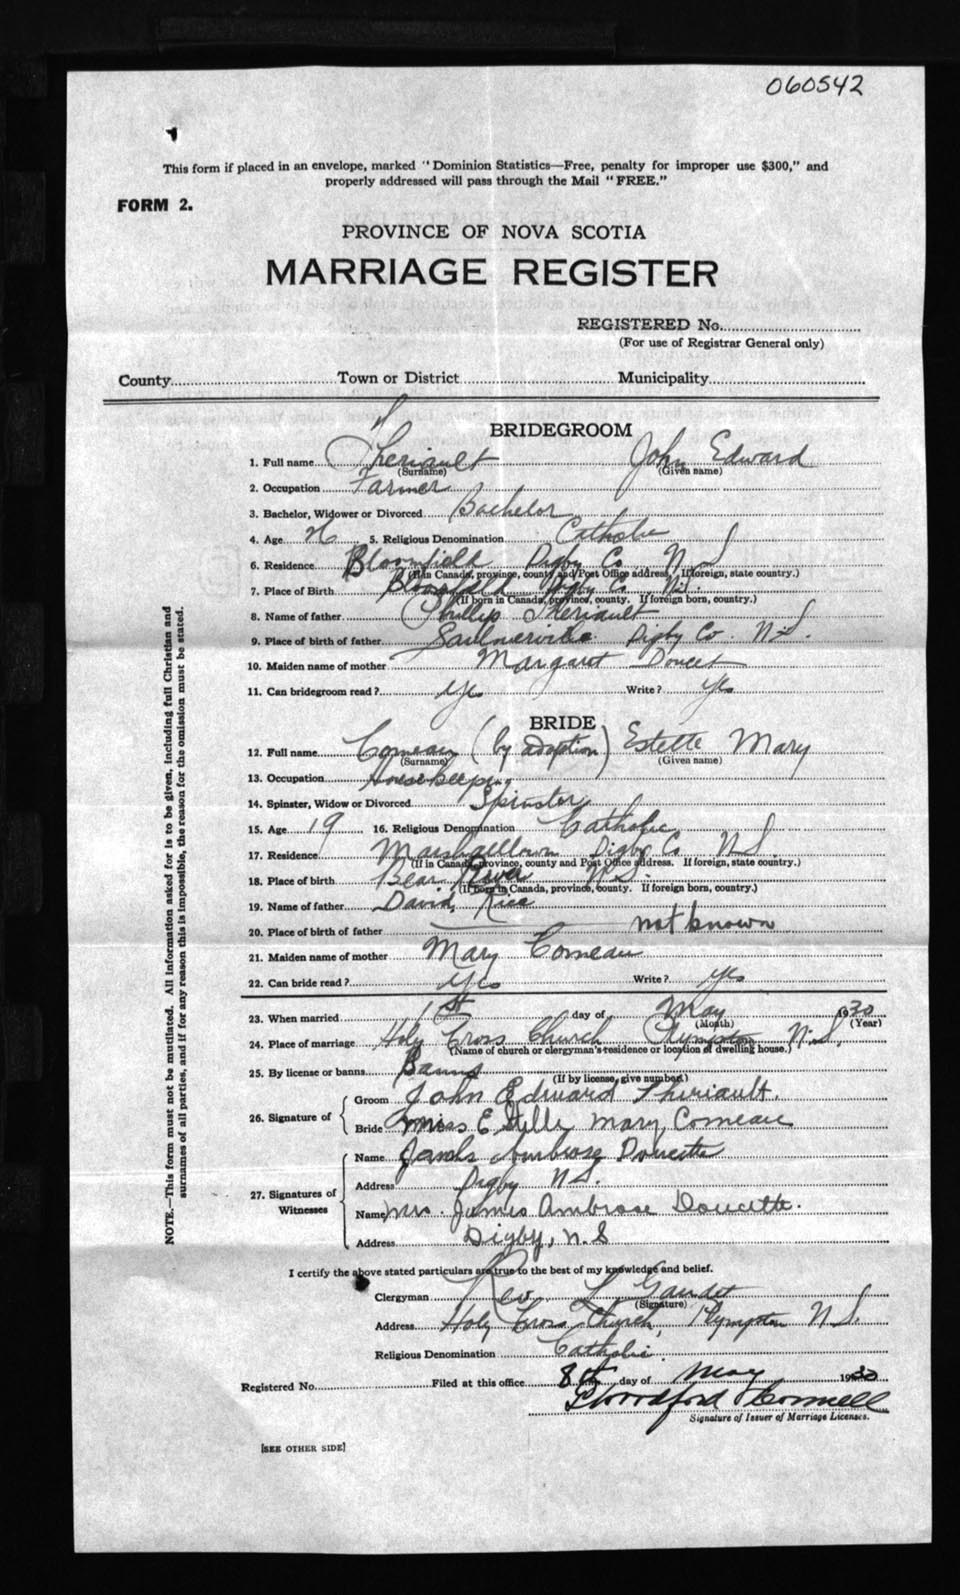 060542
This form if placed in an envelope, marked "Dominion Statistics—Free, penalty for improper use $300," and
properly addressed will pass through the Mail "FREE."
FORM 2.
PROVINCE OF NOVA SCOTIA
MARRIAGE REGISTER
REGISTERED No.
(For use of Registrar General only)
County Town or District Municipality
BRIDEGROOM
1. Full name Theriault John Edward
(Surname) (Given name)
2. Occupation Farmer
3. Bachelor, Widower or Divorced Bachelor
4. Age 26 5. Religious Denomination Catholic
6. Residence Bloomfield Digby Co N S
(If in Canada, province, county and Post Office address, If foreign, state country.)
7. Place of Birth Bloomfield Digby Co N S
(If born in Canada, province, county. If foreign born, country.)
8. Name of father Phillip Theriault
9. Place of birth of father Saulnerville Digby Co. N S.
10. Maiden name of mother Margaret Doucet
11. Can bridegroom read? yes Write? yes
BRIDE
12. Full name Comeau (by adoption) Estelle Mary
(Surname) (Given name)
13. Occupation Housekeeping
14. Spinster, Widow or Divorced Spinster
15. Age 19 16. Religious Denomination Catholic
17. Residence Marshalltown Digby Co N S.
(If in Canada, province, county and Post Office address. If foreign, state country.)
18. Place of birth Bear River N S.
(If born in Canada, province, county. If foreign born, country.)
19. Name of father David Rice
20. Place of birth of father not known
21. Maiden name of mother Mary Comeau
22. Can bride read? Yes Write? yes
23. When married 1st day of May 1930
(Month) (Year)
24. Place of marriage Holy Cross Church Plympton N. S.
(Name of church or clergyman's residence or location of dwelling house.)
25. By license or banns Banns
(If by license, give number.)
26. Signature of
Groom John Edward Theriault.
Bride Miss Estelle Mary Comeau
27. Signatures of Witnesses
Name James Ambrose Doucette
Address Digby N S.
Name Mrs. James Ambrose Doucette.
Address Digby, N. S
I certify the above stated particulars are true to the best of my knowledge and belief.
Clergyman Rev L Gaudet
(Signature)
Address Holy Cross Church, Plympton N S.
Religious Denomination Catholic.
Registered No. Filed at this office 8th day of May 1930
Connell
Signature of Issuer of Marriage Licenses.
[SEE OTHER SIDE]
NOTE.—This form must not be mutilated. All information asked for is to be given, including full Christian and
surnames of all parties, and if for any reason this is impossible, the reason for the omission must be stated.